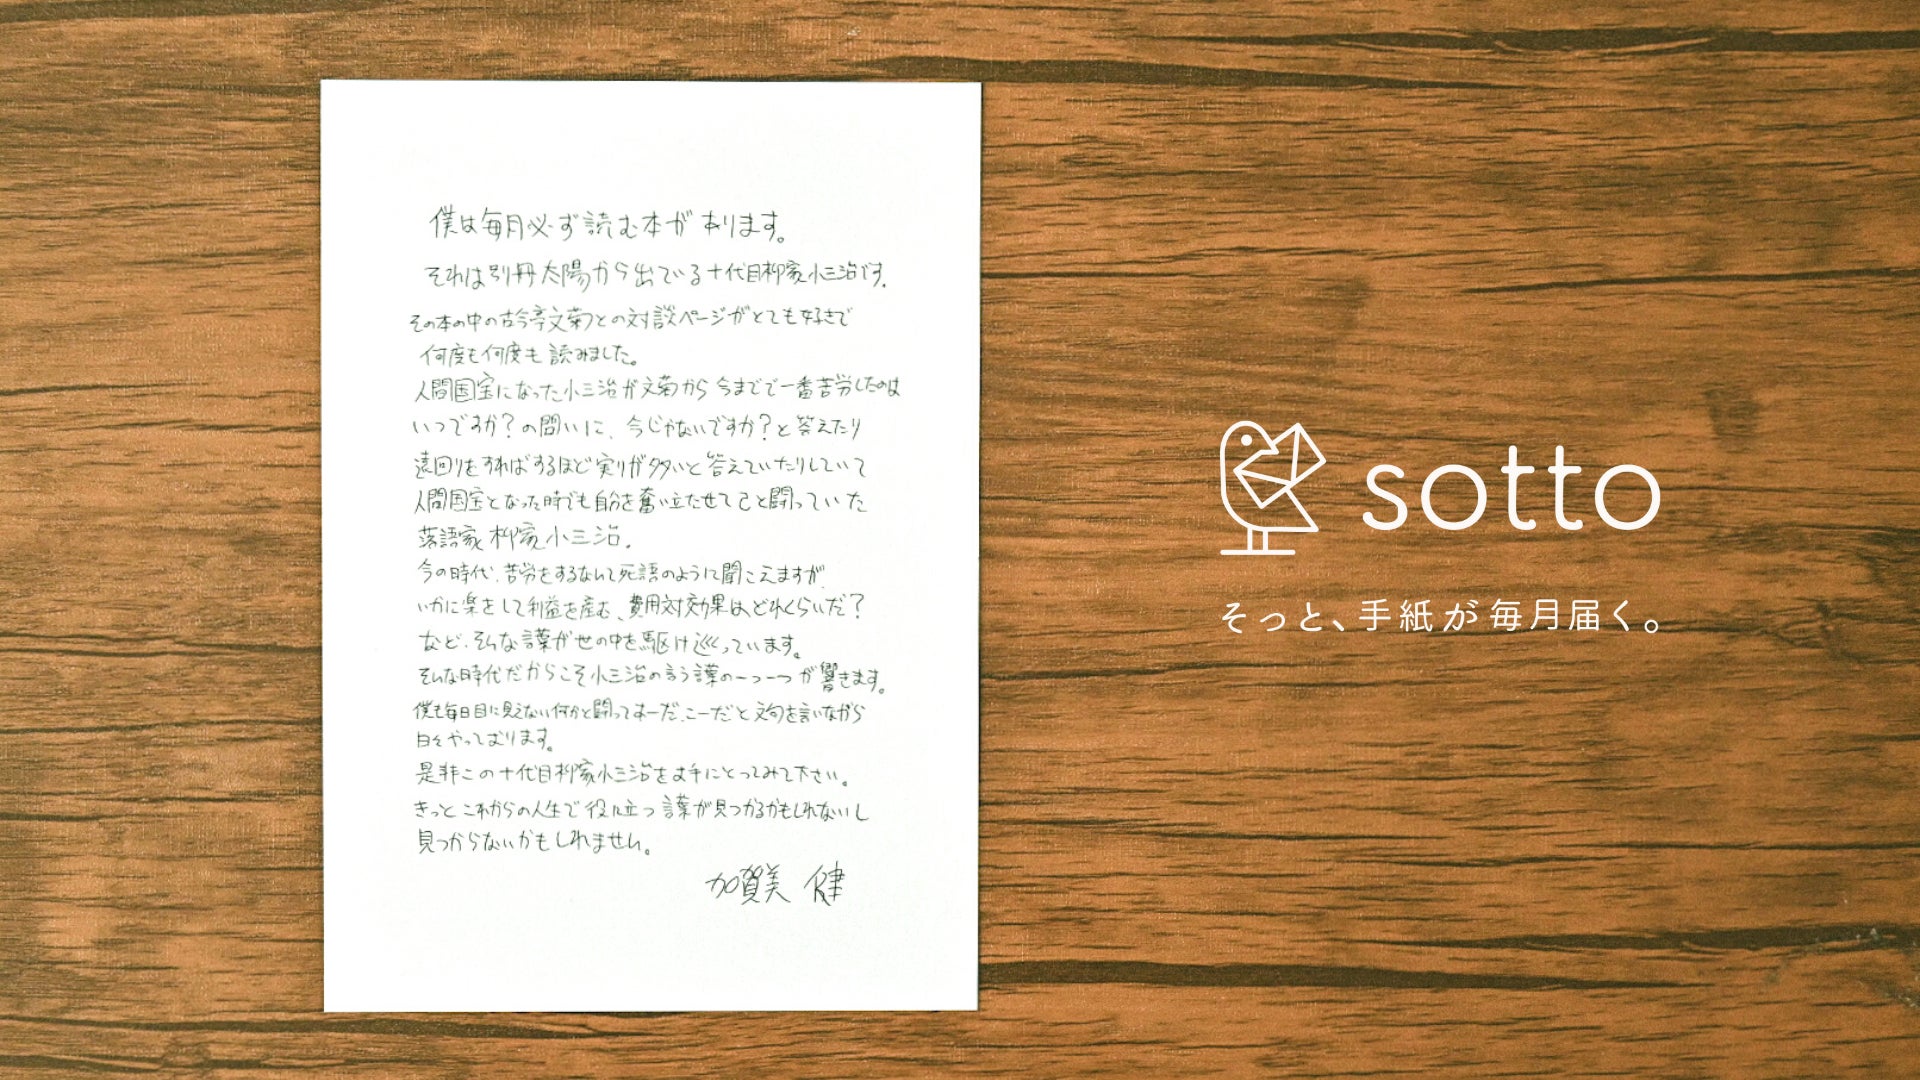 僕は毎月必ず読む本があります。
それは別冊太陽から出ている十代目柳家小三治です。
その本の中の古今亭文菊との対談ページがとても好きで
何度も何度も読みました。
人間国宝になった小三治が文菊から今までで一番苦労したのは
いつですか?の問いに、今じゃないですか?と答えたり
遠回りをすればするほど実りが多いと答えていたりしていて
人間国宝となった時でも自分を奮い立たせて己と闘っていた
落語家 柳家小三治。
今の時代、苦労をするなんて死語のように聞こえますが、
いかに楽をして利益を産む、費用対効果はどれくらいだ?
など、そんな言葉がせの中を駆け巡っています。
そんな時代だからこそ小三治の言う言葉の一つ一つが響きます。
僕も毎日目に見えない何かと闘ってあーだ、こーだと文句を言いながら
日々やっております。
是非この十代目柳家小三治をお手にとってみて下さい。
きっとこれからの人生で役に立つ言葉が見つかるかもしれないし
見つからないかもしれません。
加賀美 健
sotto
そっと、手紙が毎月届く。